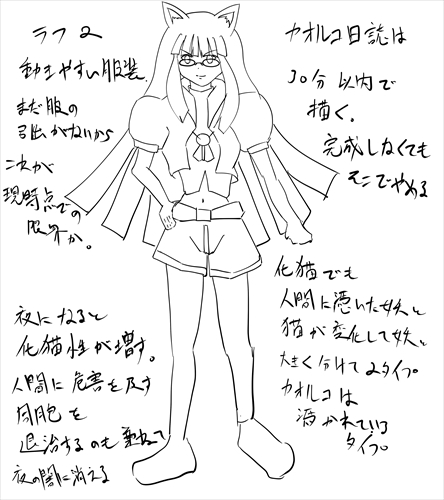 ラフ2
動きやすい服装、
まだ服の
引出がないから
これが
現時点での
限界か。
カオルコ日誌は
30分以内で
描く。
完成しなくても
そこでやめる
夜になると
化猫性が増す。
人間に危害を及す
同胞を
退治するのも兼ねて
夜の闇に消える
化猫でも
人間に憑いた妖と
猫が変化して妖と
大きく分けて2タイプ。
カオルコは
憑かれている
タイプ。